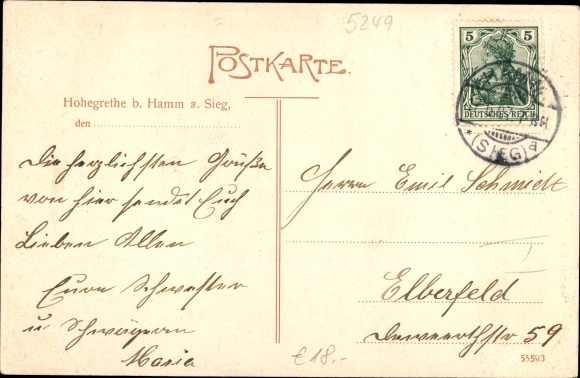 5249
POSTKARTE.
5 5
DEUTSCHES REICH
HAMM
(SIEG) a
Hohegrethe b. Hamm a. Sieg,
den
Die herzlichsten Grüße
von hier sendet Euch
Lieben Allen
Eure Schwester
u Schwägerin
Maria
Herrn Emil Schmidt
Elberfeld
Deweerthstr 59
€ 18.-
55593